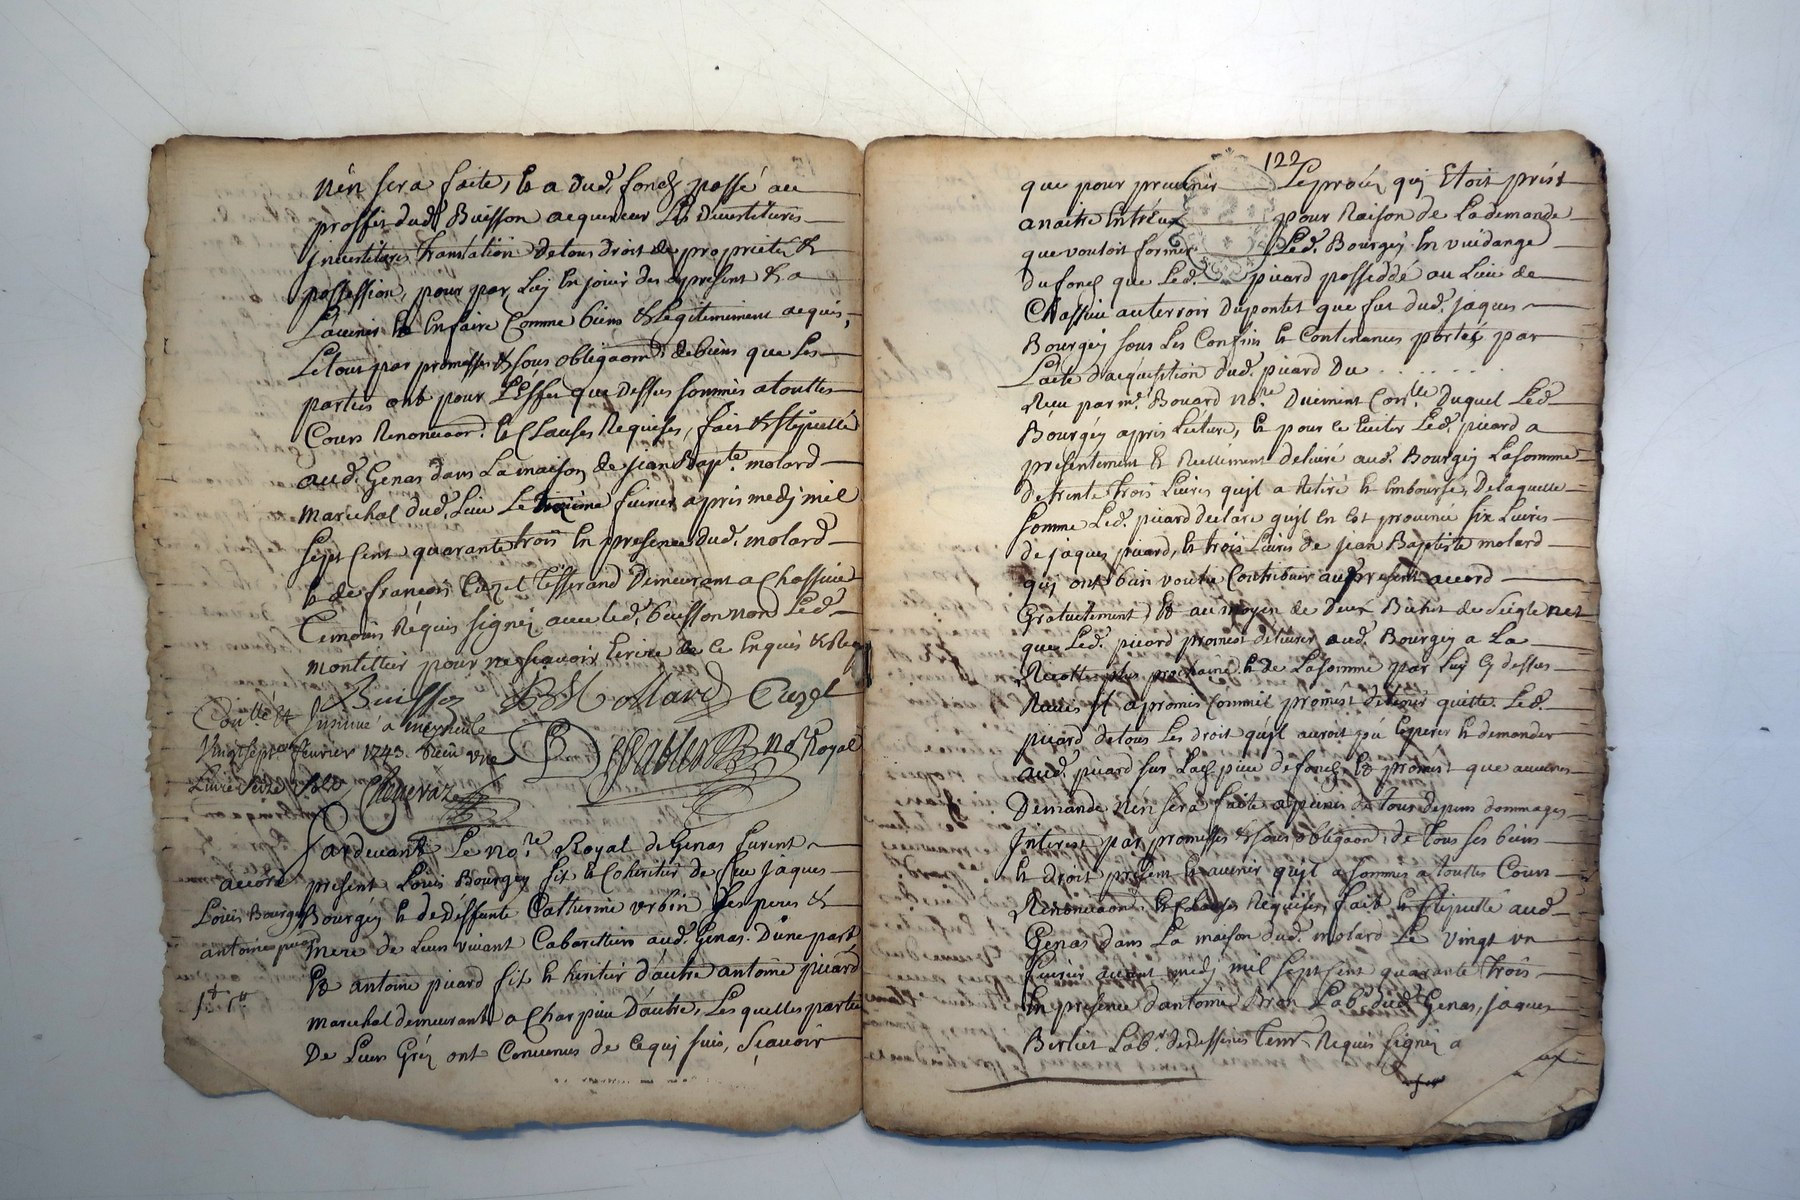 n'en sera faite, & a dud. fondz passé au
proffit dud. Buisson acquereur Les Devestitures
Investitures Translation de tous droit de propriété &
possession, pour par Luy en jouir des apresent & a
L'avenir & en faire Comme biens & Legitimement acquis,
Le tout par promesses & sous obligaons de biens que Les
parties ont pour L'Effet que Dessus sommis a touttes
Cours Renonciaon. & Clauses Requises, fait & stipullé
aud. Genas dans La maison de jean Bapte. molard
marechal dud. Lieu Le troizième fevrier apres medj mil
sept cent quarante trois En presence dud. molard
& de françois Cuzel Tisserand Demeurant a Chassieu
Temoins Requis signéz avec led. buisson non Led.
montellier pour ne sçavoir Ecrire de ce Enquis & Req.
Buisson B Mollard Cuzel
Insinué a meyzieule
Vingt sept fevrier 1743. Receu une
Livre seize sols Chenevaz
No. Royal
Pardevant Le nore. Royal de Genas furent
accord present Louis Bourgey fils & Coheritier de feu jaques
Louis Bourgey Bourgey & de deffunte Catherine urbin ses pere &
antoine picard mere de Leur vivant Cabarettiers aud. Genas. D'une part
Et antoine picard fils & heritier d'autre antoine picard
marechal demeurant a Charpieu D'autre, Les quelles parties
De Leurs Gréz ont Convenues de ce quj suis, Sçavoir
122
que pour prevenir Le procéz quj Etoit prést
a naitre Entréux pour Raison de La demande
que vouloit former Led. Bourgey En vuidange
du fondz que Led. picard posseddé au Lieu de
Chassieu au terroir Dupontet que fut dud. jaques
Bourgey sous Les Confins & Contenances portéz par
L'acte d'acquisition dud. picard Du . . . . . . .
Reçu par me. Bouard nore. Duement Conlle. Duquel Led.
Bourgéy apres Lecture, & pour ce Eviter Led. picard a
presentement & Reellement delivré aud. Bourgey La somme
de trente trois Livres qu'jl a Retiré & Emboursé, De laquelle
somme Led. picard declare qu'jl En Est provenue six Livres
de jaques picard, & trois Livres de jean Baptiste molard
quj ont bien voulu Contribuer au present accord
Gratuitement, Et au moyen de Deux Bichet de seigle net
que Led. picard promest délivrer aud. Bourgey a La
Recolte plus prochaine & de La somme par Luy cy dessus
Receue jl a promes Comme il promést de tenir quitte Led.
picard de tous Les droit qu'jl auroit pû Esperer & demander
aud. picard sur Lad. piece de fondz Et promést que aucunes
Demande n'en sera faite a peine de tous depens dommages
Interest par promesses & sous obligaons de tous ses biens
& droit presens & avenir qu'jl a sommes a touttes Cours
Renonciaon & Clauses Requises, fait & stipullé aud.
Genas dans La maison dud. molard Le vingt un
fevrier avant medj mil sept cent quarante trois
En presence d'antoine Labr. dud. Genas, jaques
Berliet Labr. de dessines Tem. Requis signéz a